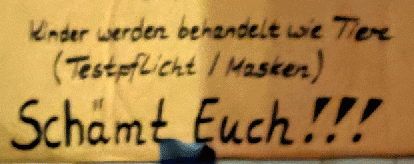 Kinder werden behandelt wie Tiere
(Testpflicht / Masken)
Schämt Euch!!!